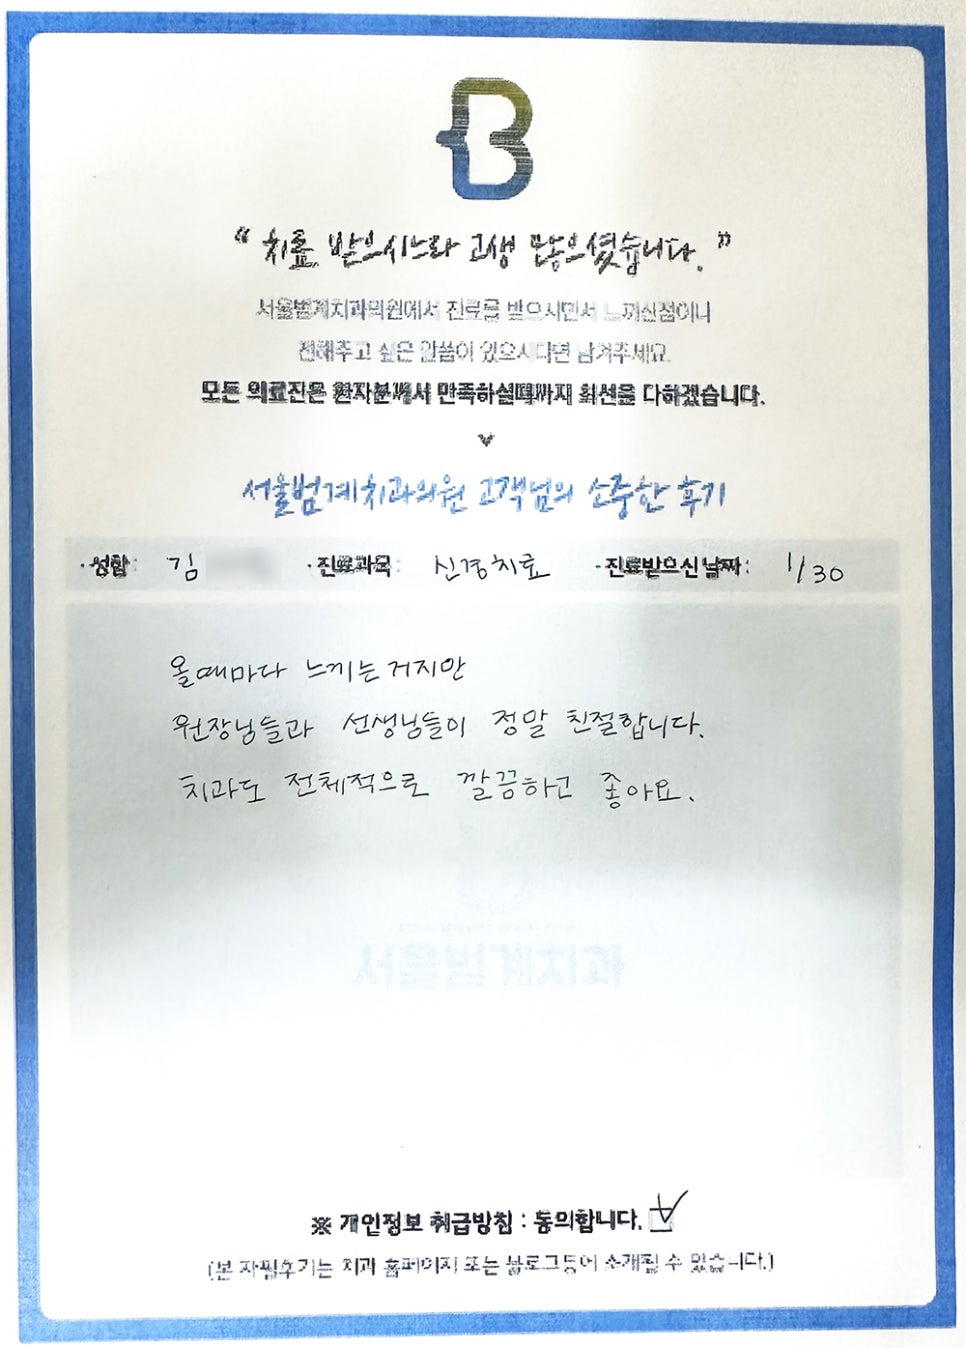 B
“ 치료 받으시느라 고생 많으셨습니다. ”
서울범계치과의원에서 진료를 받으시면서 느끼신점이나
전해주고 싶은 말씀이 있으시다면 남겨주세요.
모든 의료진은 환자분께서 만족하실때까지 최선을 다하겠습니다.
서울범계치과의원 고객님의 소중한 후기
·성함: 김 ·진료과목: 신경치료 ·진료받으신날짜: 1/30
올때마다 느끼는거지만
원장님들과 선생님들이 정말 친절합니다.
치과도 전체적으로 깔끔하고 좋아요.
※ 개인정보 취급방침 : 동의합니다.
(본 자필후기는 치과 홈페이지 또는 블로그등에 소개될 수 있습니다.)